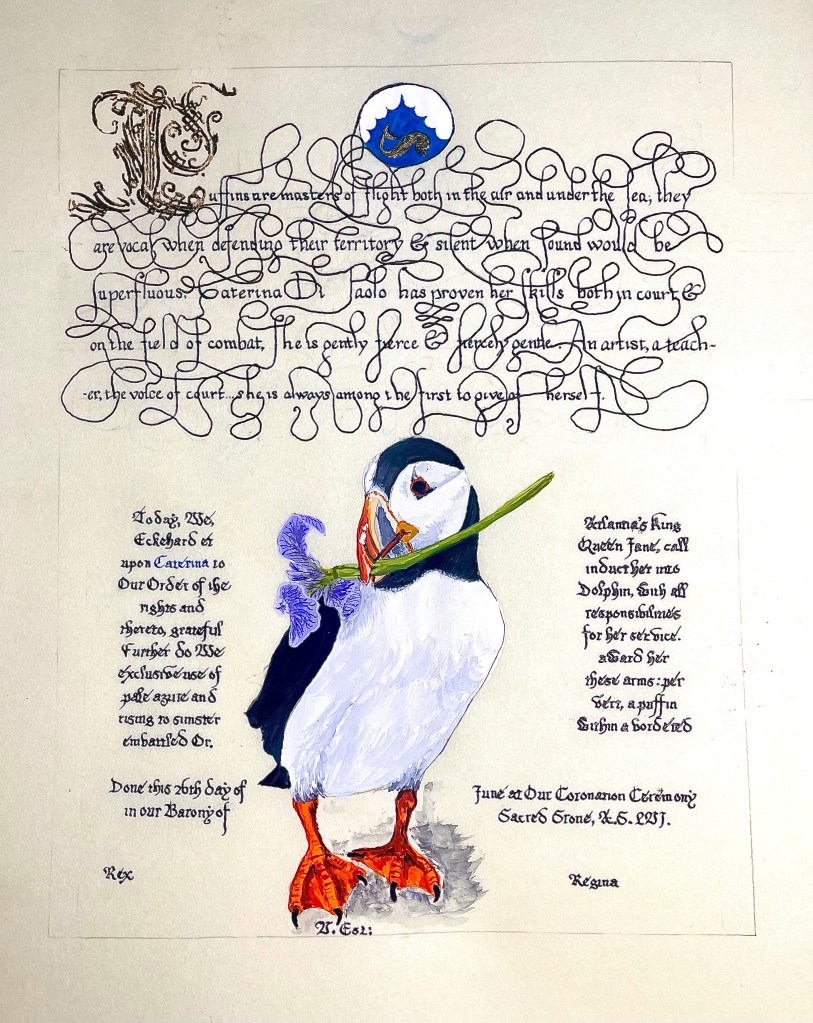 Puffins are masters of flight both in the air and under the Sea; they
are vocal when defending their territory & silent when sound would be
superfluous. Caterina Di Paolo has proven her skills both in court &
on the field of combat, She is gently fierce & fiercely gentle. An artist, a teach-
-er, the voice of court...she is always among the first to give of herself.
Today, We, Atlantia's King
Eckehard et Queen Jane, call
upon Caterina to induct her into
Our Order of the Dolphin, with all
rights and responsibilities
thereto, grateful for her service.
Further do We award her
exclusive use of these arms: per
pale azure and vert, a puffin
rising to sinister within a bordered
embattled Or.
Done this 26th day of June at Our Coronation Ceremony
in our Barony of Sacred Stone, A.S. LVI.
Rex Regina